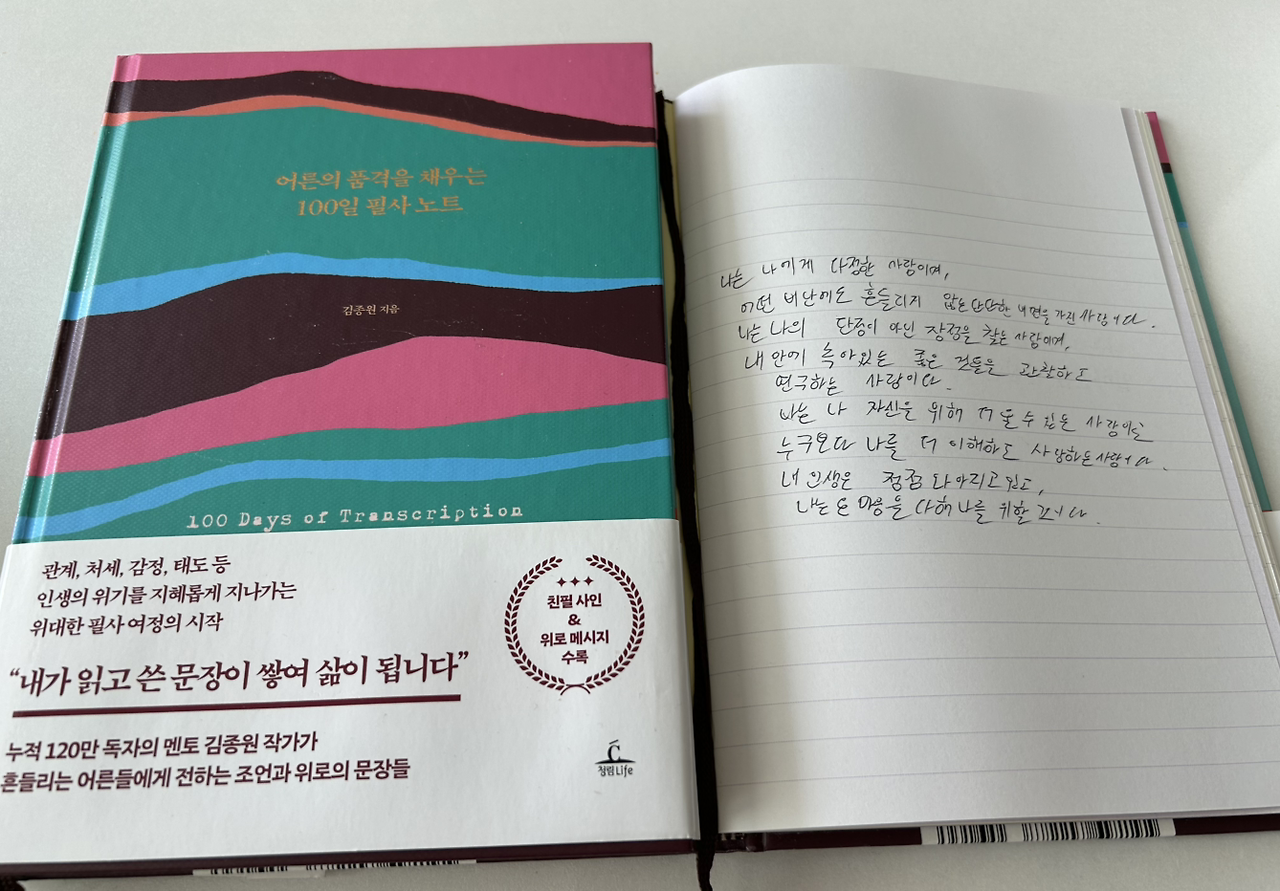 어른의 품격을 채우는
100일 필사 노트
김종원 지음
100 Days of Transcription
관계, 처세, 감정, 태도 등
인생의 위기를 지혜롭게 지나가는
위대한 필사 여정의 시작
“내가 읽고 쓴 문장이 쌓여 삶이 됩니다”
누적 120만 독자의 멘토 김종원 작가가
흔들리는 어른들에게 전하는 조언과 위로의 문장들
친필 사인
&
위로 메시지
수록
청림Life
나는 나에게 다정한 사람이며,
어떤 비난에도 흔들리지 않는 단단한 내면을 가진 사람이다.
나는 나의 단점이 아닌 장점을 찾는 사람이며,
내 안에 녹아있는 좋은 것들을 관찰하고
연구하는 사람이다.
나는 나 자신을 위해 울 수 있는 사람이고
누구보다 나를 더 이해하고 사랑하는 사람이다.
내 인생은 점점 나아지고 있고,
나는 온 마음을 다해 나를 위할 것이다.